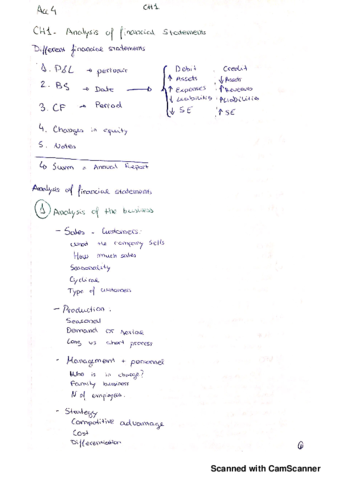 Acc 4
CH1
CH1. Analysis of financial statements
Different financial statements
1. P&L → period
2. BS → Date →
3. CF → Period
Debit Credit
↑ Assets ↓ Assets
↑ Expenses ↑ Revenues
↓ Liabilities ↑ Liabilities
↓ SE ↑ SE
4. Changes in equity
5. Notes
↳ Summ = Annual Report
Analysis of financial statements
1 Analysis of the business
- Sales - Customers:
What the company sells
How much sales
Seasonality
Cyclical
Type of customers
- Production:
Seasonal
Demand or serial
Long vs short process
- Management + personnel
Who is in charge?
Family business
Nº of employees
- Strategy
Competitive advantage
Cost
Differentiation
Scanned with CamScanner